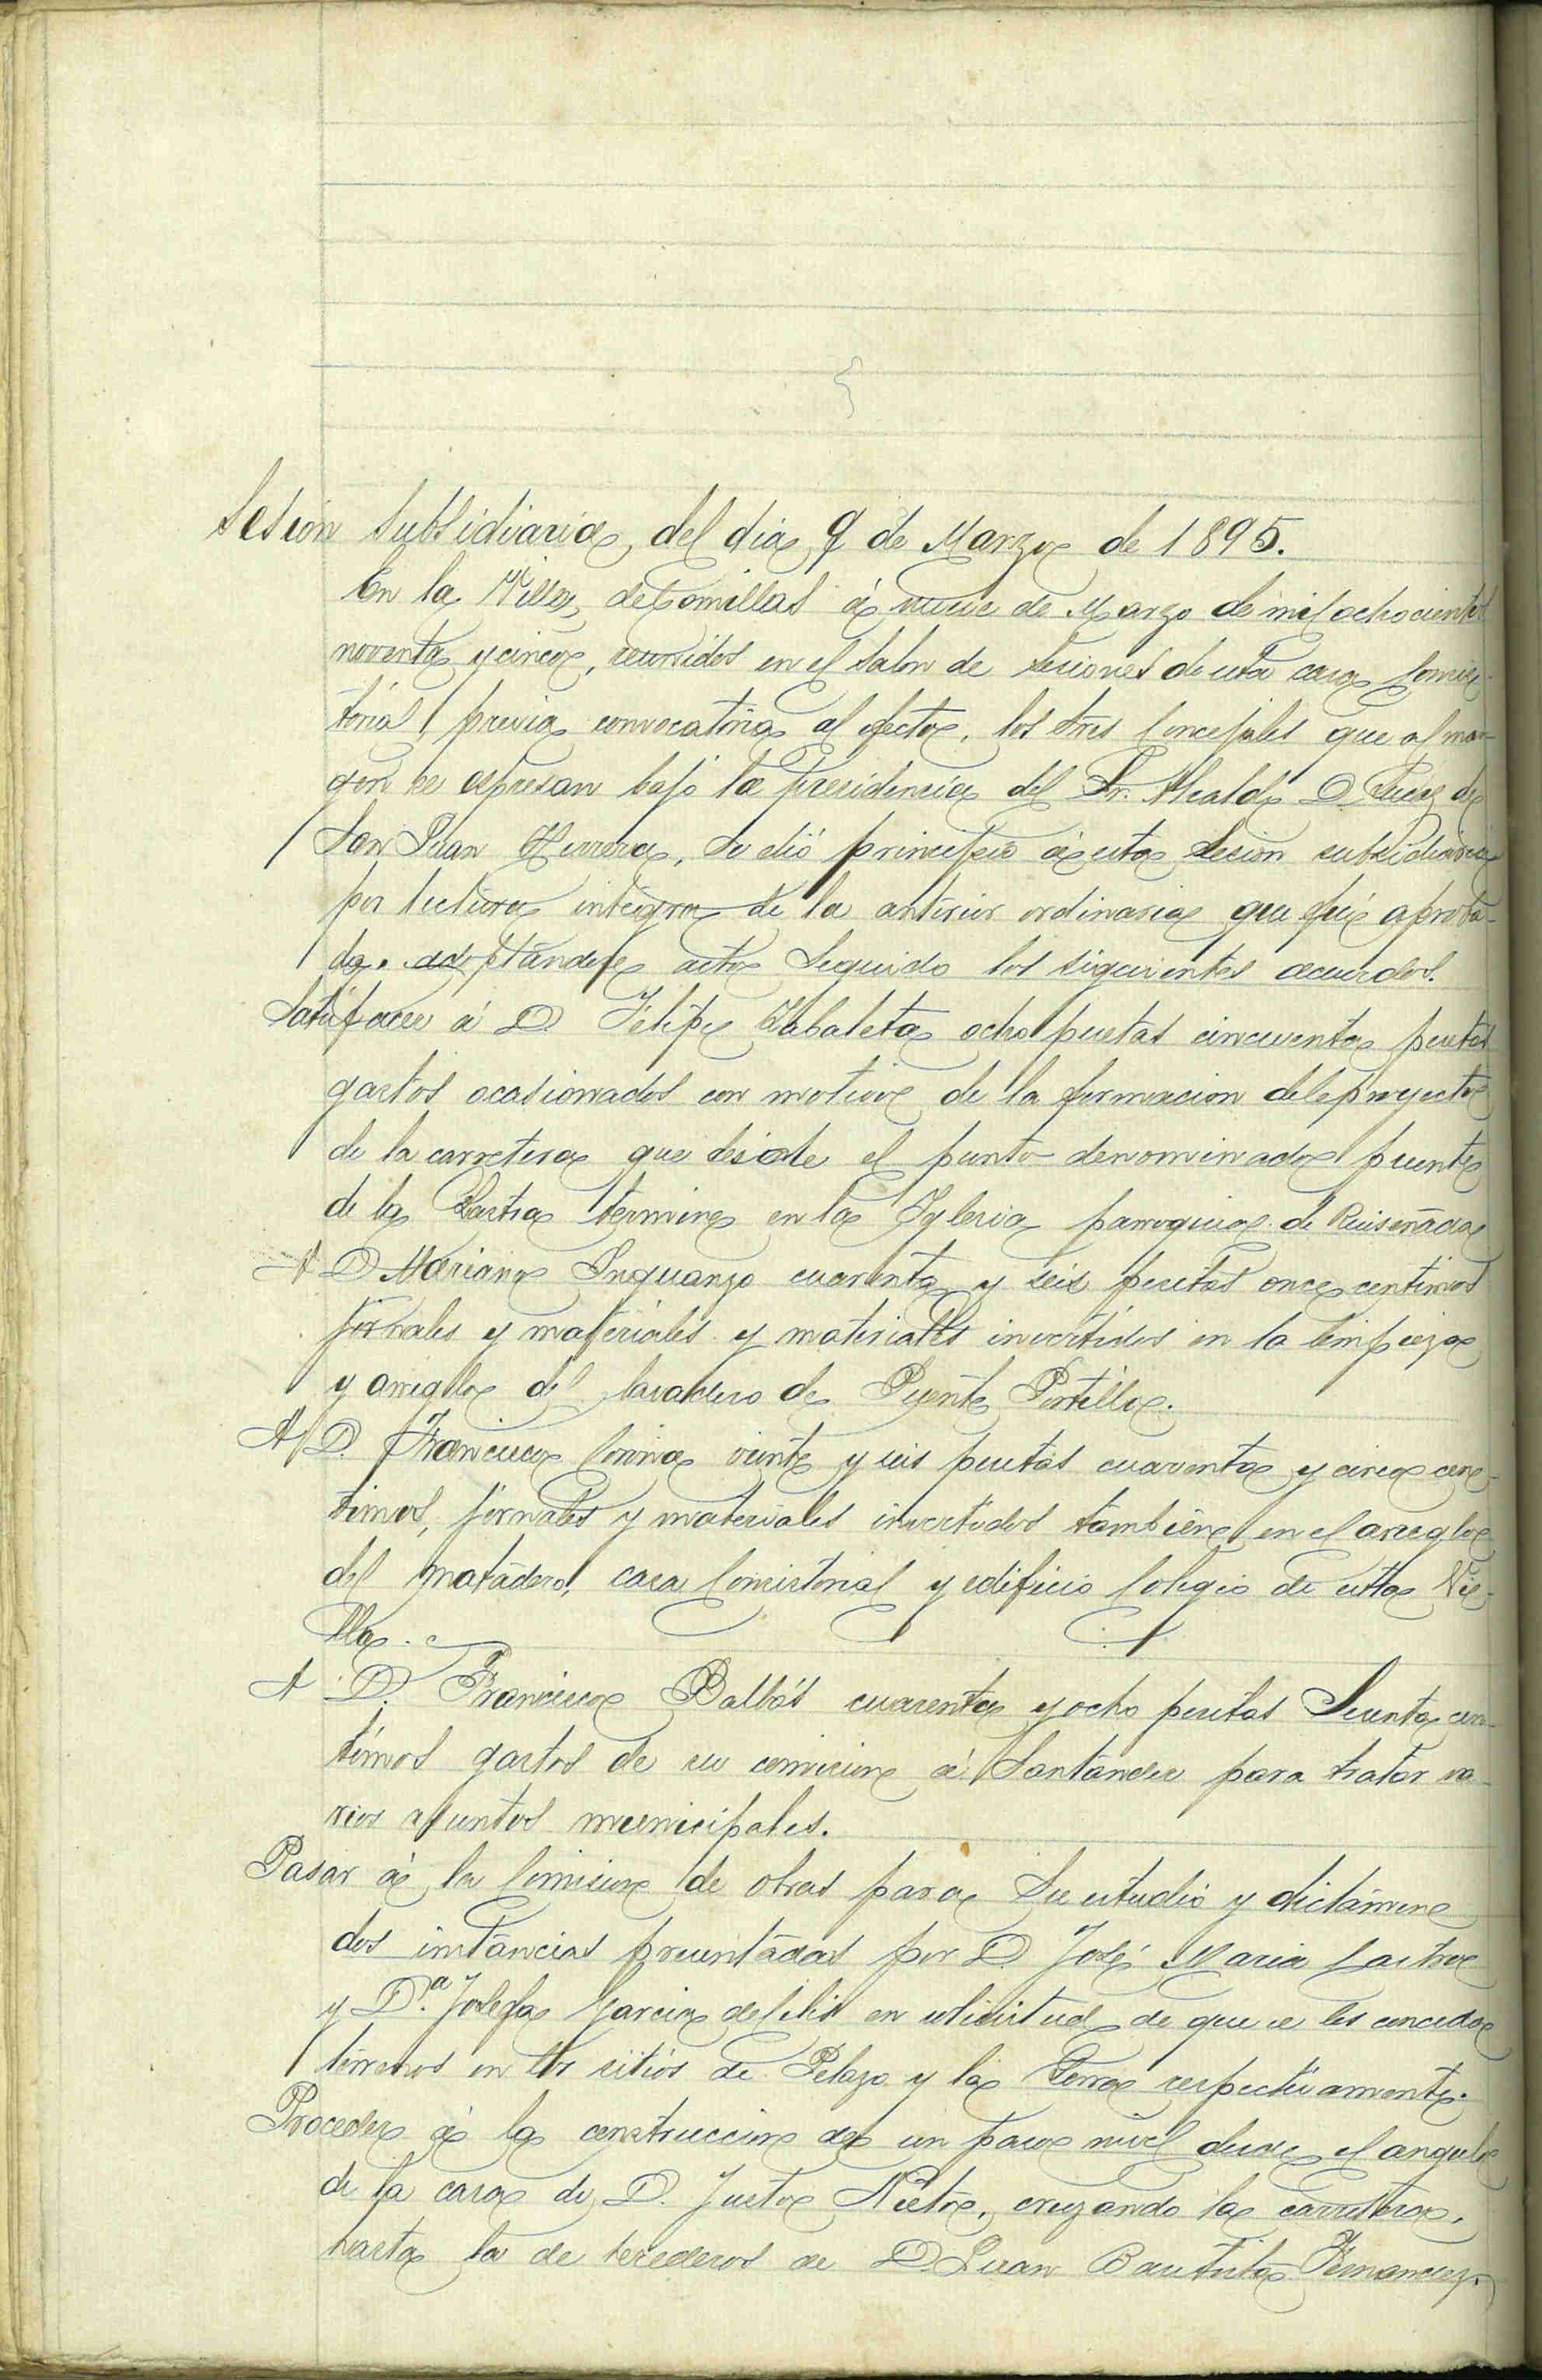 Sesion subsidiaria del dia 9 de Marzo de 1895.
En la Villa de Comillas á nueve de Marzo de mil ochocientos
noventa y cinco, reunidos en el Salon de sesiones de esta casa Consis-
torial previa convocatoria al efecto, los Sres Concejales que al mar-
gen se espresan bajo la presidencia del Sr. Alcalde D. de
San Juan Herrera, se dió principio á esta Sesion subsidiaria
por lectura integra de la anterior ordinaria que fué aproba-
da. adoptandose acto seguido los siguientes acuerdos.
Satisfacer á D. Felipe Zabaleta ocho pesetas cincuenta pesetas
gastos ocasionados con motivo de la formacion del proyecto
de la carretera que desde el punto denominado puente
de la Rastra termine en la Yglesia parroquial de Ruiseñada
A D. Mariano Inguanzo cuarenta y seis pesetas once centimos
jornales y materiales y materiales invertidos en la limpieza
y arreglo del lavadero de Puente Portillo.
A D. Francisco veinte y seis pesetas cuarenta y cinco cen-
timos, jornales y materiales invertidos tambien en el arreglo
del matadero, casa Consistorial y edificio Colegio de esta Vi-
lla.
A D. Francisco Balbás cuarenta y ocho pesetas Sesenta cen-
timos gastos de su comision á Santander para tratar va-
rios asuntos municipales.
Pasar á la Comision de obras para su estudio y dictamen
dos instancias presentadas por D. José Maria Lastra
y D.ª Josefa Garcia de Celis en solicitud de que se les conceda
terrenos en los sitios de Pelazo y la respectivamente.
Proceder á la construccion de un paso nivel desde el angulo
de la casa de D. Justo Nieto, cruzando la carretera,
hasta la de herederos de D. Juan Bautista Fernandez.